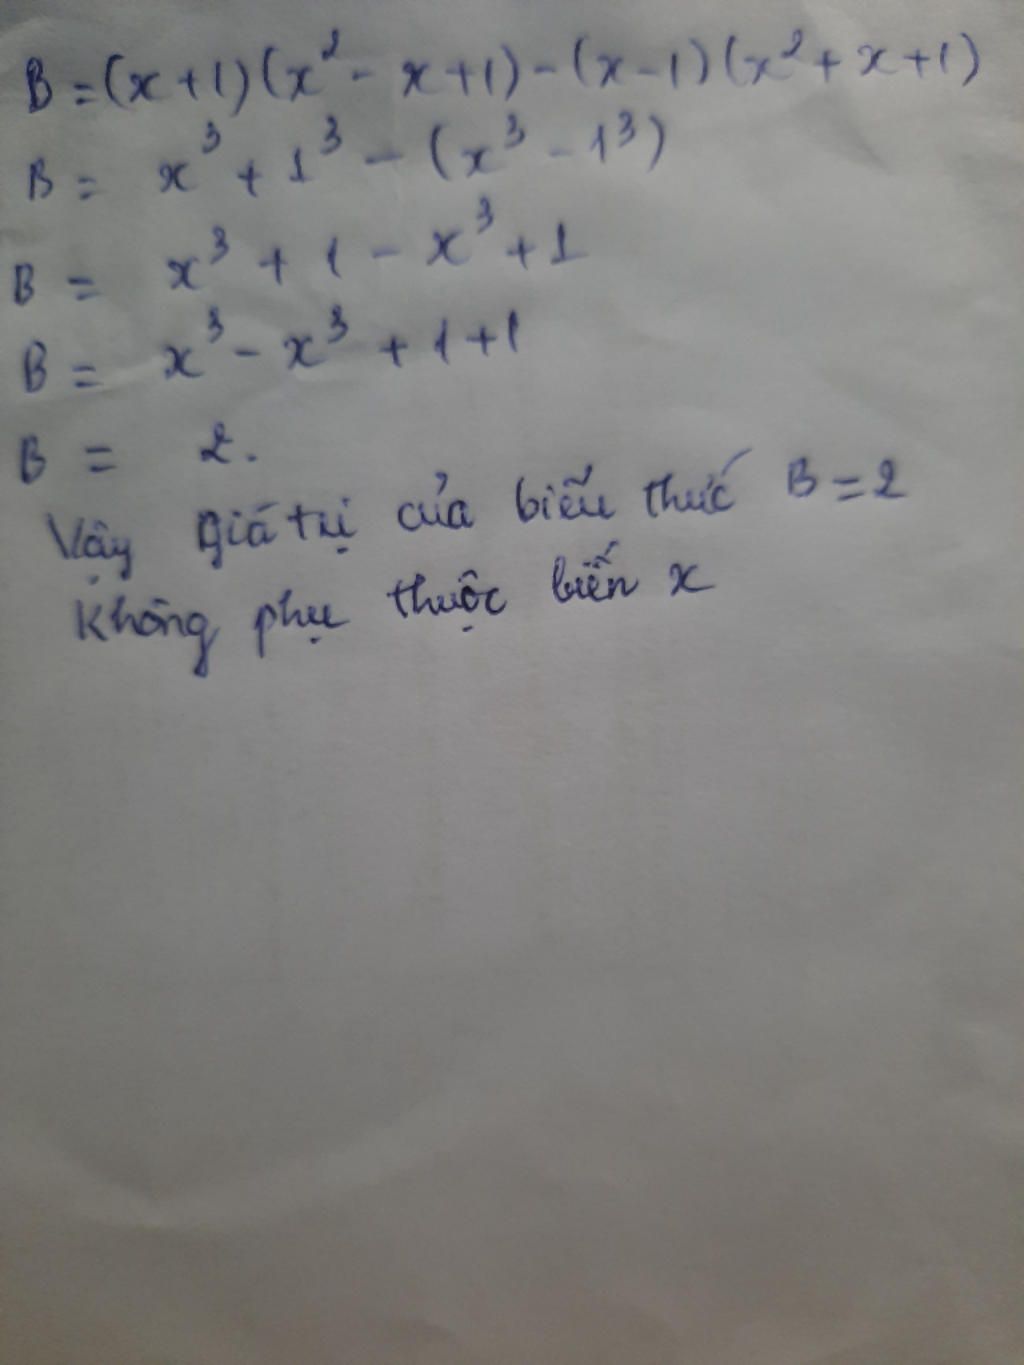 B = (x+1)(x² - x+1) - (x-1)(x² + x+1)
B = x³ + 1³ - (x³ - 1³)
B = x³ + 1 - x³ + 1
B = x³ - x³ + 1 + 1
B = 2.
Vậy giá trị của biểu thức B = 2
Không phụ thuộc biến x